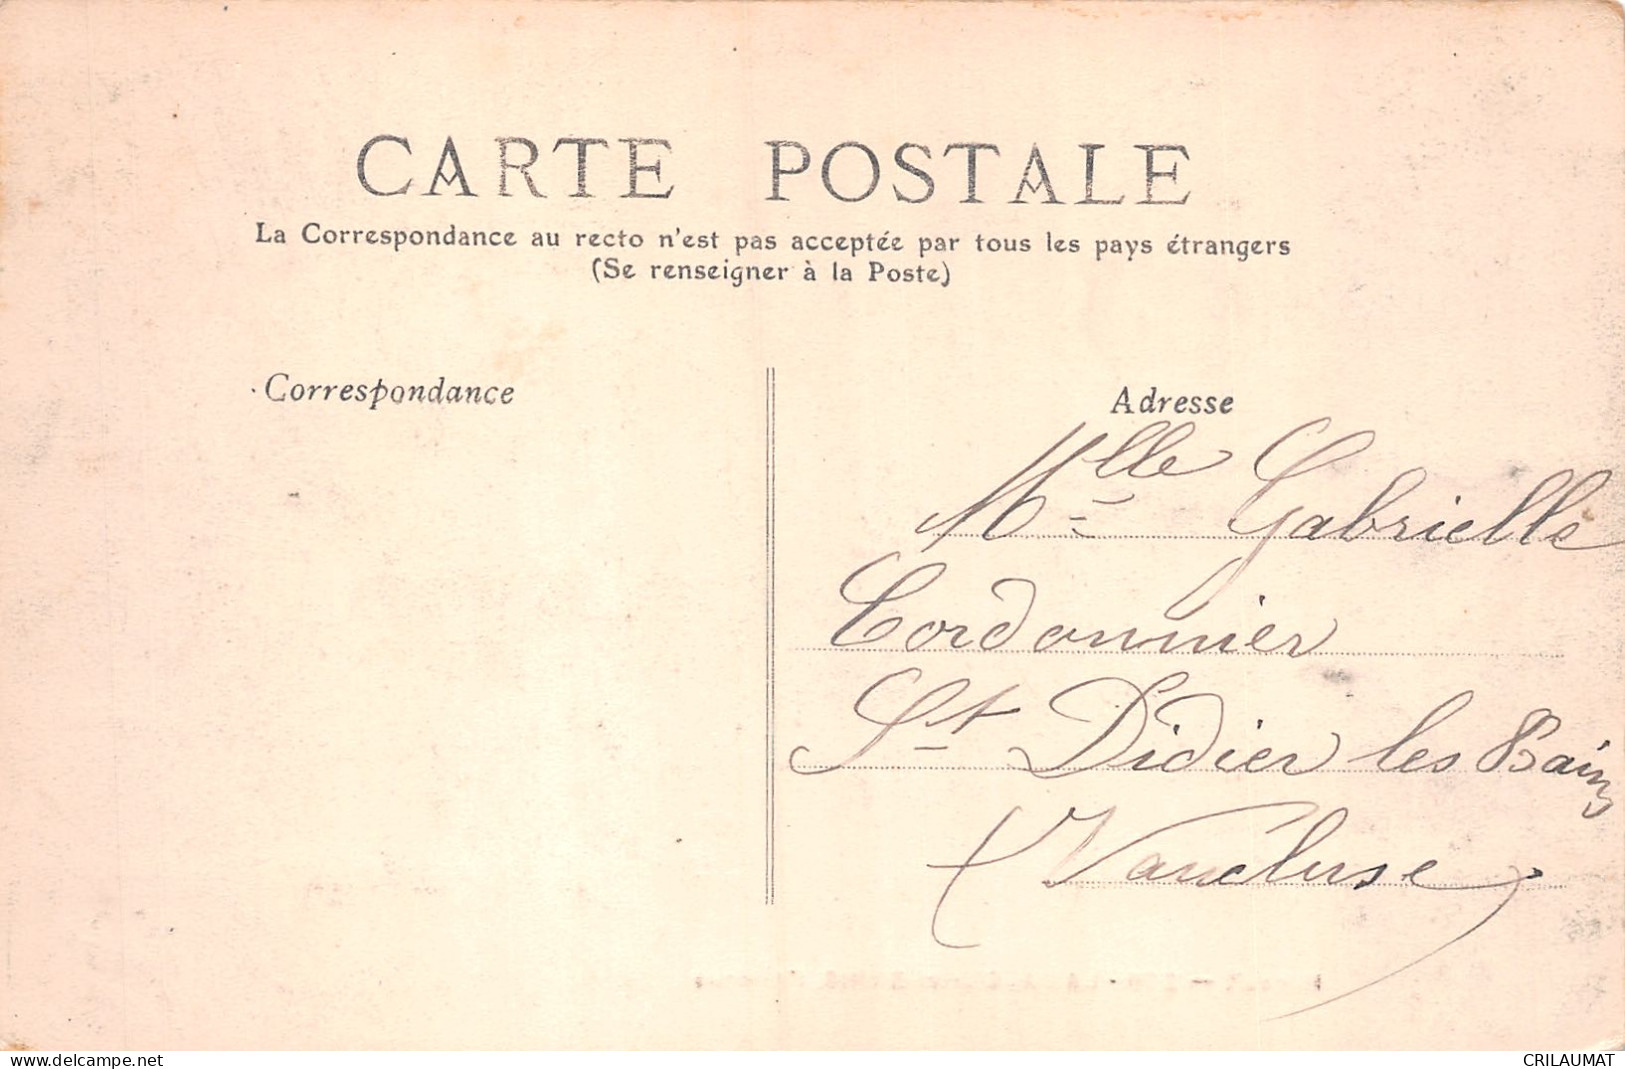 CARTE POSTALE
La Correspondance au recto n'est pas acceptée par tous les pays étrangers
(Se renseigner à la Poste)
Correspondance
Adresse
Mlle Gabrielle
Cordonnier
St Didier les Bains
(Vaucluse)
www.delcampe.net
CRILAUMAT